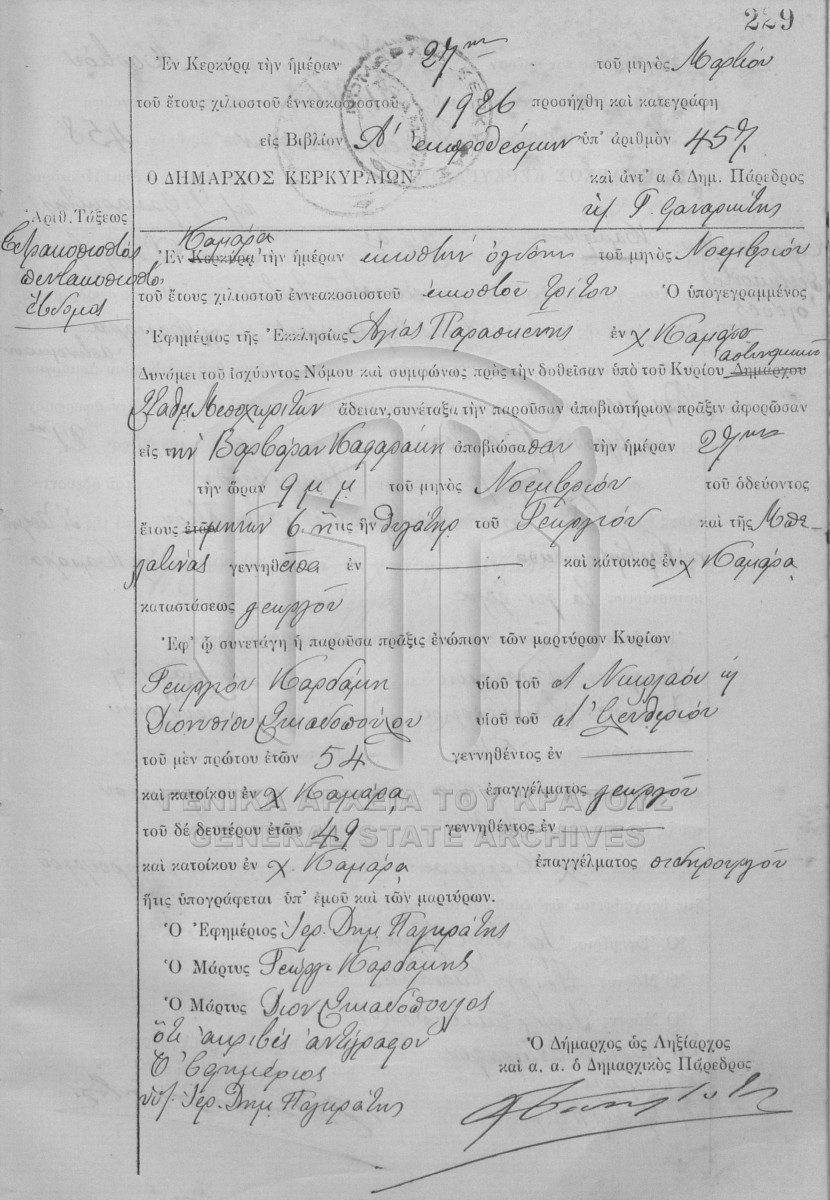 229
Ἐν Κερκύρᾳ τὴν ἡμέραν 27ην τοῦ μηνὸς Μαρτίου
τοῦ ἔτους χιλιοστοῦ ἐννεακοσιοστοῦ 1926 προσήχθη καὶ κατεγράφη
εἰς Βιβλίον Α' ἐκπροθέσμων ὑπ' ἀριθμὸν 457
Ο ΔΗΜΑΡΧΟΣ ΚΕΡΚΥΡΑΙΩΝ καὶ ἀντ' α ὁ Δημ. Πάρεδρος
Ἀριθ. Τάξεως
πεντακοσιοστὸς
ἕβδομος
Καμάρα
Ἐν Κερκύρᾳ τὴν ἡμέραν εἰκοστὴν ὀγδόην τοῦ μηνὸς Νοεμβρίου
τοῦ ἔτους χιλιοστοῦ ἐννεακοσιοστοῦ εἰκοστοῦ τρίτου Ὁ ὑπογεγραμμένος
Ἐφημέριος τῆς Ἐκκλησίας Ἁγίας Παρασκευῆς ἐν χ Καμάρᾳ
ἀστυνομικοῦ
Δυνάμει τοῦ ἰσχύοντος Νόμου καὶ συμφώνως πρὸς τὴν δοθεῖσαν ὑπὸ τοῦ Κυρίου Δημάρχου
Σταθμ Μεσοχωριτῶν ἄδειαν, συνέταξα τὴν παροῦσαν ἀποβιωτήριον πρᾶξιν ἀφορῶσαν
εἰς τὴν Βαρβάραν ἀποβιώσασαν τὴν ἡμέραν 27ην
τὴν ὥραν 9 μ μ τοῦ μηνὸς Νοεμβρίου τοῦ ὁδεύοντος
ἔτους ἐτῶν μηνῶν 6. ἥτις ἦν θυγάτηρ τοῦ Γεωργίου καὶ τῆς
γεννηθεῖσα ἐν καὶ κάτοικος ἐν χ Καμάρα
καταστάσεως γεωργοῦ
Ἐφ' ᾧ συνετάγη ἡ παροῦσα πρᾶξις ἐνώπιον τῶν μαρτύρων Κυρίων
Γεωργίου Καρδάμη υἱοῦ τοῦ Νικολάου ἢ
Διονυσίου Σκιαδοπούλου υἱοῦ τοῦ Ἐλευθερίου
τοῦ μὲν πρώτου ἐτῶν 54 γεννηθέντος ἐν
καὶ κατοίκου ἐν χ Καμάρα ἐπαγγέλματος γεωργοῦ
τοῦ δὲ δευτέρου ἐτῶν 49 γεννηθέντος ἐν
καὶ κατοίκου ἐν χ. Καμάρα ἐπαγγέλματος σιδηρουργοῦ
ἥτις ὑπογράφεται ὑπ' ἐμοῦ καὶ τῶν μαρτύρων.
Ὁ Ἐφημέριος Ἱερ. Δημ Παγκράτης
Ὁ Μάρτυς Γεώργ. Καρδάμης
Ὁ Μάρτυς Διον Σκιαδόπουλος
ὅτι ἀκριβὲς ἀντίγραφον
Ὁ Ἐφημέριος
Ἱερ. Δημ Παγκράτης
Ὁ Δήμαρχος ὡς Ληξίαρχος
καὶ α. α. ὁ Δημαρχικὸς Πάρεδρος
ΓΕΝΙΚΑ ΑΡΧΕΙΑ ΤΟΥ ΚΡΑΤΟΥΣ
GENERAL STATE ARCHIVES